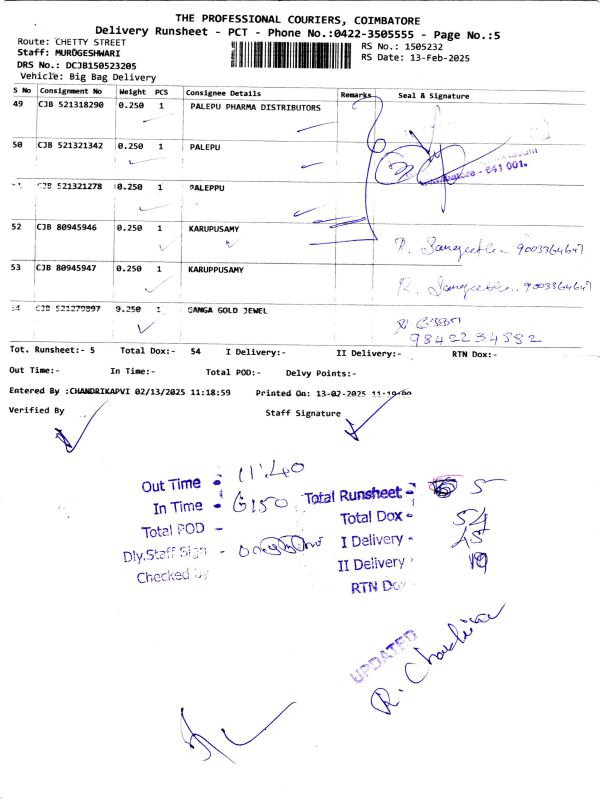 THE PROFESSIONAL COURIERS, COIMBATORE
Delivery Runsheet - PCT - Phone No.:0422-3505555 - Page No.:5
Route: CHETTY STREET
RS No.: 1505232
Staff: MUROGESHWARI
RS Date: 13-Feb-2025
DRS No.: DCJB150523205
Vehicle: Big Bag Delivery
S No Consignment No Weight PCS Consignee Details Remarks Seal & Signature
49 CJB 521318290 0.250 1 PALEPU PHARMA DISTRIBUTORS
50 CJB 521321342 0.250 1 PALEPU
- 641 001.
CJB 521321278 0.250 1 PALEPPU
52 CJB 80945946 0.250 1 KARUPUSAMY
R. Sangeetha 9003364647
53 CJB 80945947 0.250 1 KARUPPUSAMY
R. Sangeetha 9003364647
54 CJB 521279897 0.250 1 GANGA GOLD JEWEL
9842234582
Tot. Runsheet:- 5 Total Dox:- 54 I Delivery:- II Delivery:- RTN Dox:-
Out Time:- In Time:- Total POD:- Delvy Points:-
Entered By :CHANDRIKAPVI 02/13/2025 11:18:59 Printed On: 13-02-2025 11:19:00
Verified By Staff Signature
Out Time - 11.40
In Time - 6.50
Total Runsheet - 5
Total POD -
Total Dox - 54
Dly.Staff Sign -
I Delivery - 45
Checked by
II Delivery -
RTN Dox
UPDATED
R. Chandrika